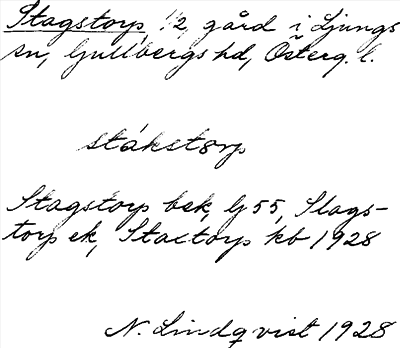 Stagstorp 1/2, gård i Ljungs
sn, Gullbergs hd, Österg. l.
stákstørp
Stagstorp bek, Gj 55, Slags-
torp ek, Stactorp kb 1928
N. Lindqvist 1928